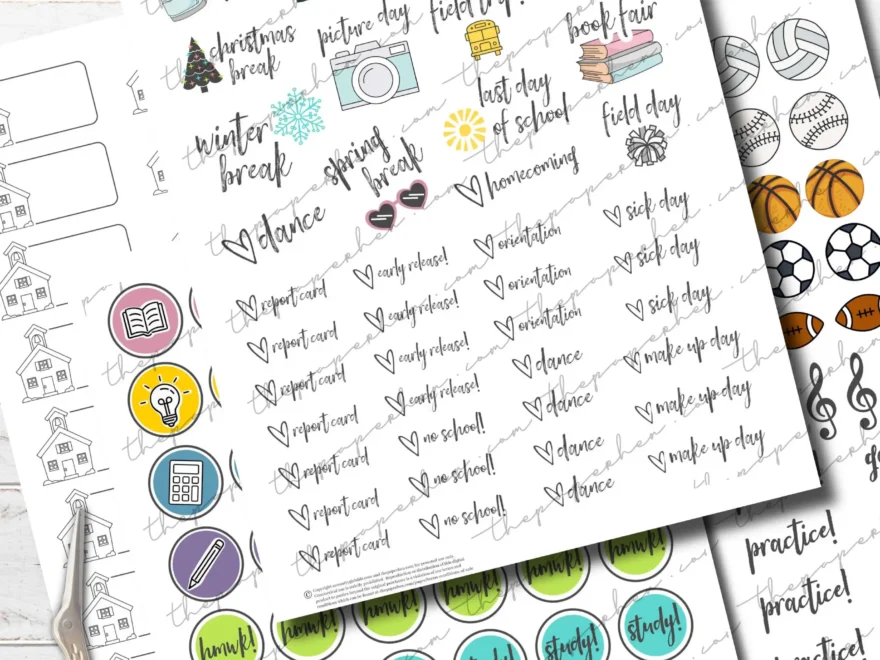 christmas break
picture day
field trip!
book fair
winter break
spring break
last day of school
field day
dance
homecoming
report card
report card
report card
report card
report card
report card
report card
early release!
early release!
early release!
early release!
no school!
no school!
no school!
orientation
orientation
orientation
dance
dance
dance
dance
sick day
sick day
sick day
make up day
make up day
make up day
hmwk!
hmwk!
hmwk!
hmwk!
hmwk!
hmwk!
study!
study!
study!
practice!
practice!
practice!
thepaperhen.com